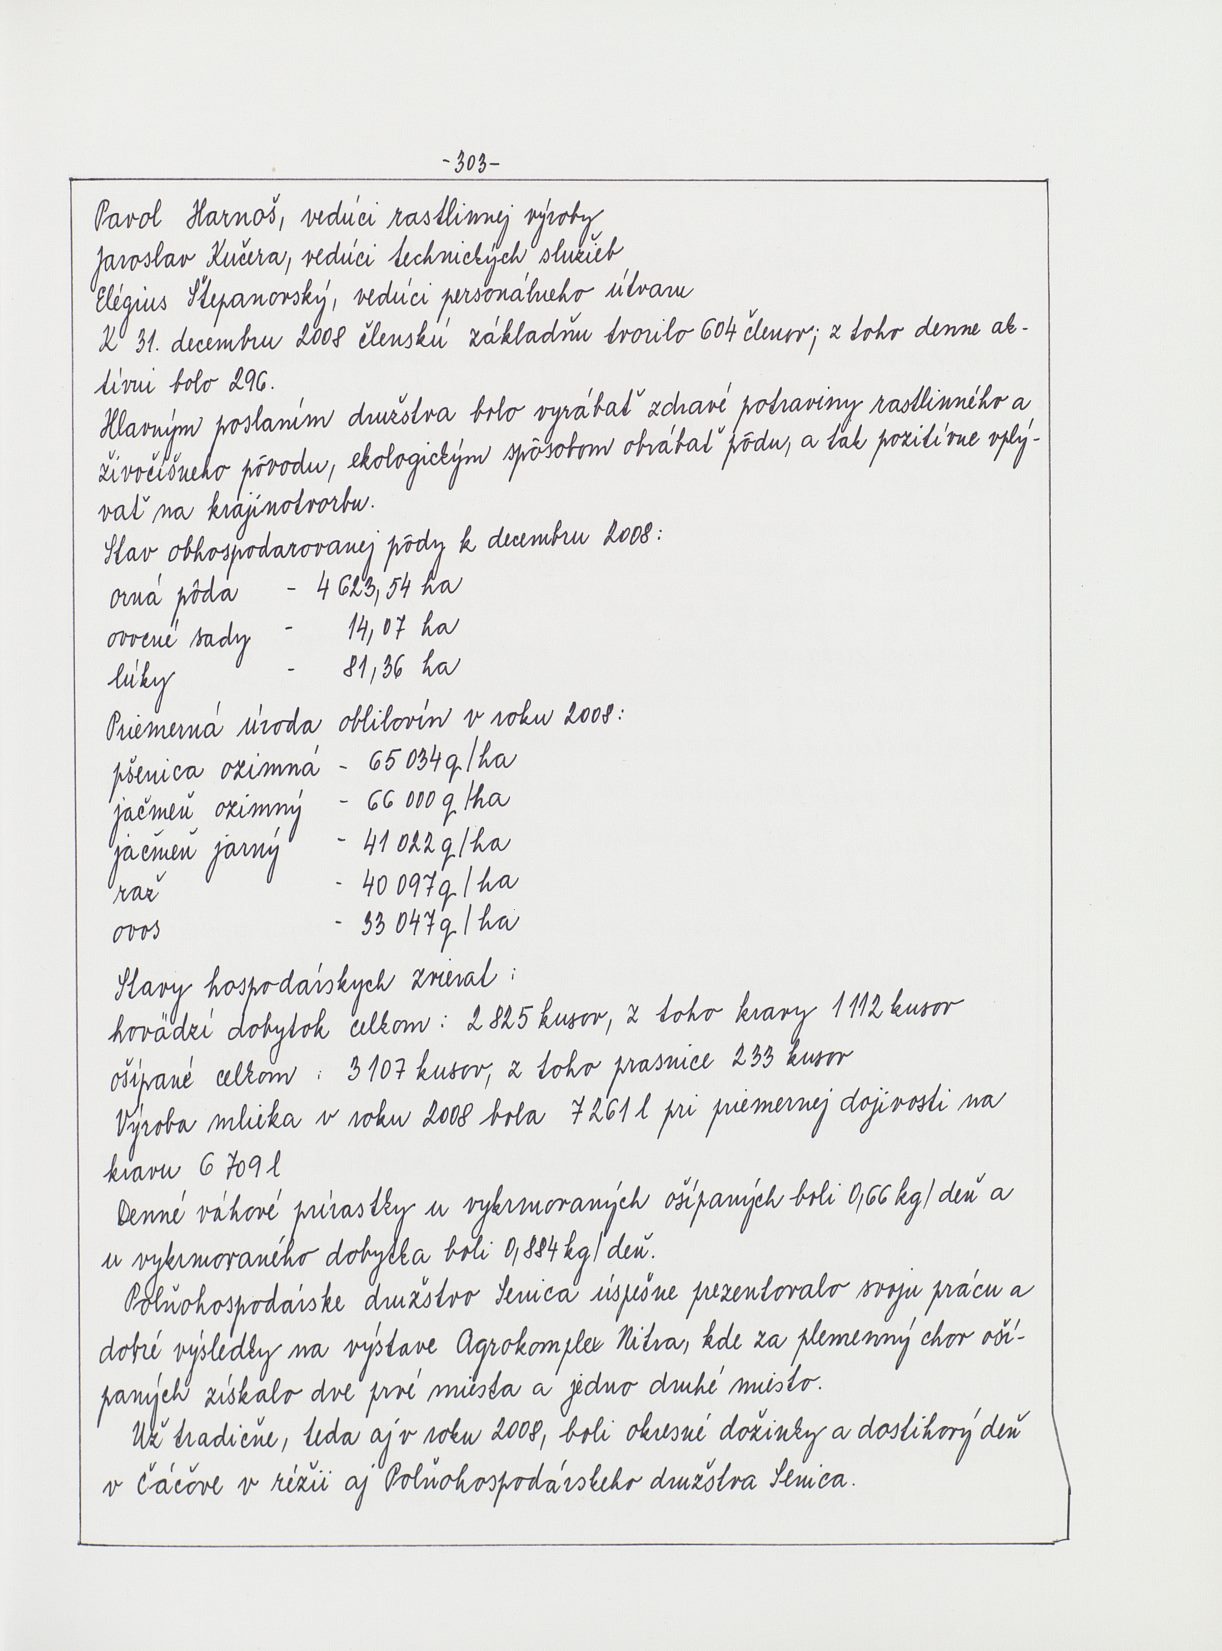 -303-
Pavol Harnoš, vedúci rastlinnej výroby
Jaroslav Kučera, vedúci technických služieb
Elégius Štepanovský, vedúci personálneho útvaru
K 31. decembru 2008 členskú základňu tvorilo 604 členov; z toho denne ak-
tívni bolo 296.
Hlavným poslaním družstva bolo vyrábať zdravé potraviny rastlinného a
živočíšneho pôvodu, ekologickým spôsobom obrábať pôdu, a tak pozitívne vplý-
vať na krajinotvorbu.
Stav obhospodarovanej pôdy k decembru 2008:
orná pôda - 4 623,54 ha
ovocné sady - 14,07 ha
lúky - 81,36 ha
Priemerná úroda obilovín v roku 2008:
pšenica ozimná - 65 034 q/ha
jačmeň ozimný - 66 000 q/ha
jačmeň jarný - 41 022 q/ha
raž - 40 097 q/ha
ovos - 33 047 q/ha
Stavy hospodárskych zvierat:
hovädzí dobytok celkom: 2 825 kusov, z toho kravy 1 112 kusov
ošípané celkom : 3 107 kusov, z toho prasnice 233 kusov
Výroba mlieka v roku 2008 bola 7 261 l pri priemernej dojivosti na
kravu 6 709 l
Denné váhové prírastky u vykrmovaných ošípaných boli 0,66 kg/deň a
u vykrmovaného dobytka boli 0,884 kg/deň.
Poľnohospodárske družstvo Senica úspešne prezentovalo svoju prácu a
dobré výsledky na výstave Agrokomplex Nitra, kde za plemenný chov oší-
paných získalo dve prvé miesta a jedno druhé miesto.
Už tradične, teda aj v roku 2008, boli okresné dožinky a dostihový deň
v Čáčove v réžii aj Poľnohospodárskeho družstva Senica.